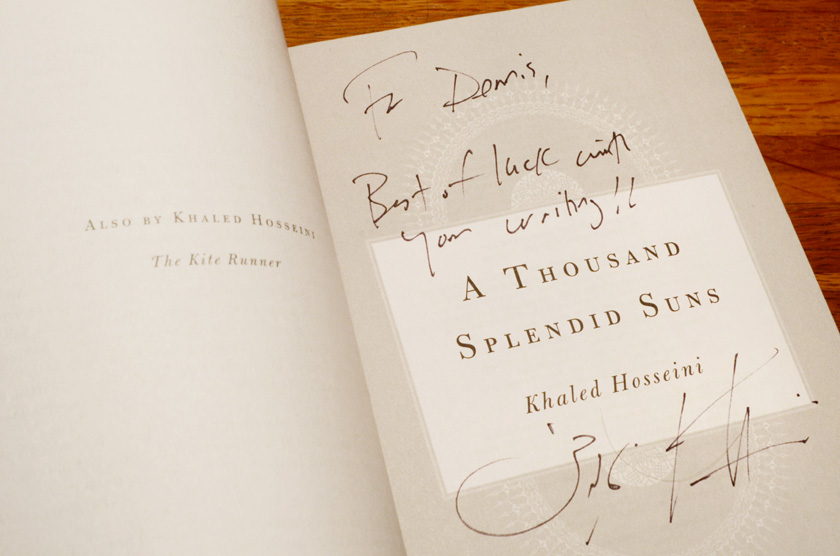 ALSO BY KHALED HOSSEINI
The Kite Runner
To Dennis,
Best of luck with
your writing!!
A THOUSAND
SPLENDID SUNS
Khaled Hosseini